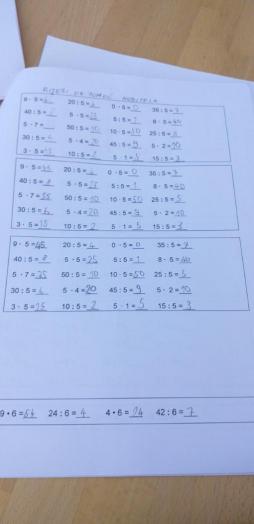 RIJEŠI UZ POMOĆ MOBITELA
9 · 5 = 20 : 5 = 4 0 · 5 = 0 35 : 5 = 7
40 : 5 = 5 · 5 = 25 5 : 5 = 1 8 · 5 = 40
5 · 7 = 50 : 5 = 10 10 · 5 = 50 25 : 5 =
30 : 5 = 5 · 4 = 20 45 : 5 = 9 5 · 2 = 10
3 · 5 = 15 10 : 5 = 2 5 · 1 = 5 15 : 5 = 3
9 · 5 = 45 20 : 5 = 4 0 · 5 = 0 35 : 5 = 7
40 : 5 = 8 5 · 5 = 25 5 : 5 = 1 8 · 5 = 40
5 · 7 = 35 50 : 5 = 10 10 · 5 = 50 25 : 5 = 5
30 : 5 = 6 5 · 4 = 20 45 : 5 = 5 · 2 = 10
3 · 5 = 15 10 : 5 = 2 5 · 1 = 5 15 : 5 = 3
9 · 5 = 45 20 : 5 = 4 0 · 5 = 0 35 : 5 = 7
40 : 5 = 8 5 · 5 = 25 5 : 5 = 1 8 · 5 = 40
5 · 7 = 35 50 : 5 = 10 10 · 5 = 50 25 : 5 = 5
30 : 5 = 6 5 · 4 = 20 45 : 5 = 9 5 · 2 = 10
3 · 5 = 15 10 : 5 = 2 5 · 1 = 5 15 : 5 = 3
9 • 6 = 54 24 : 6 = 4 4 • 6 = 24 42 : 6 = 7